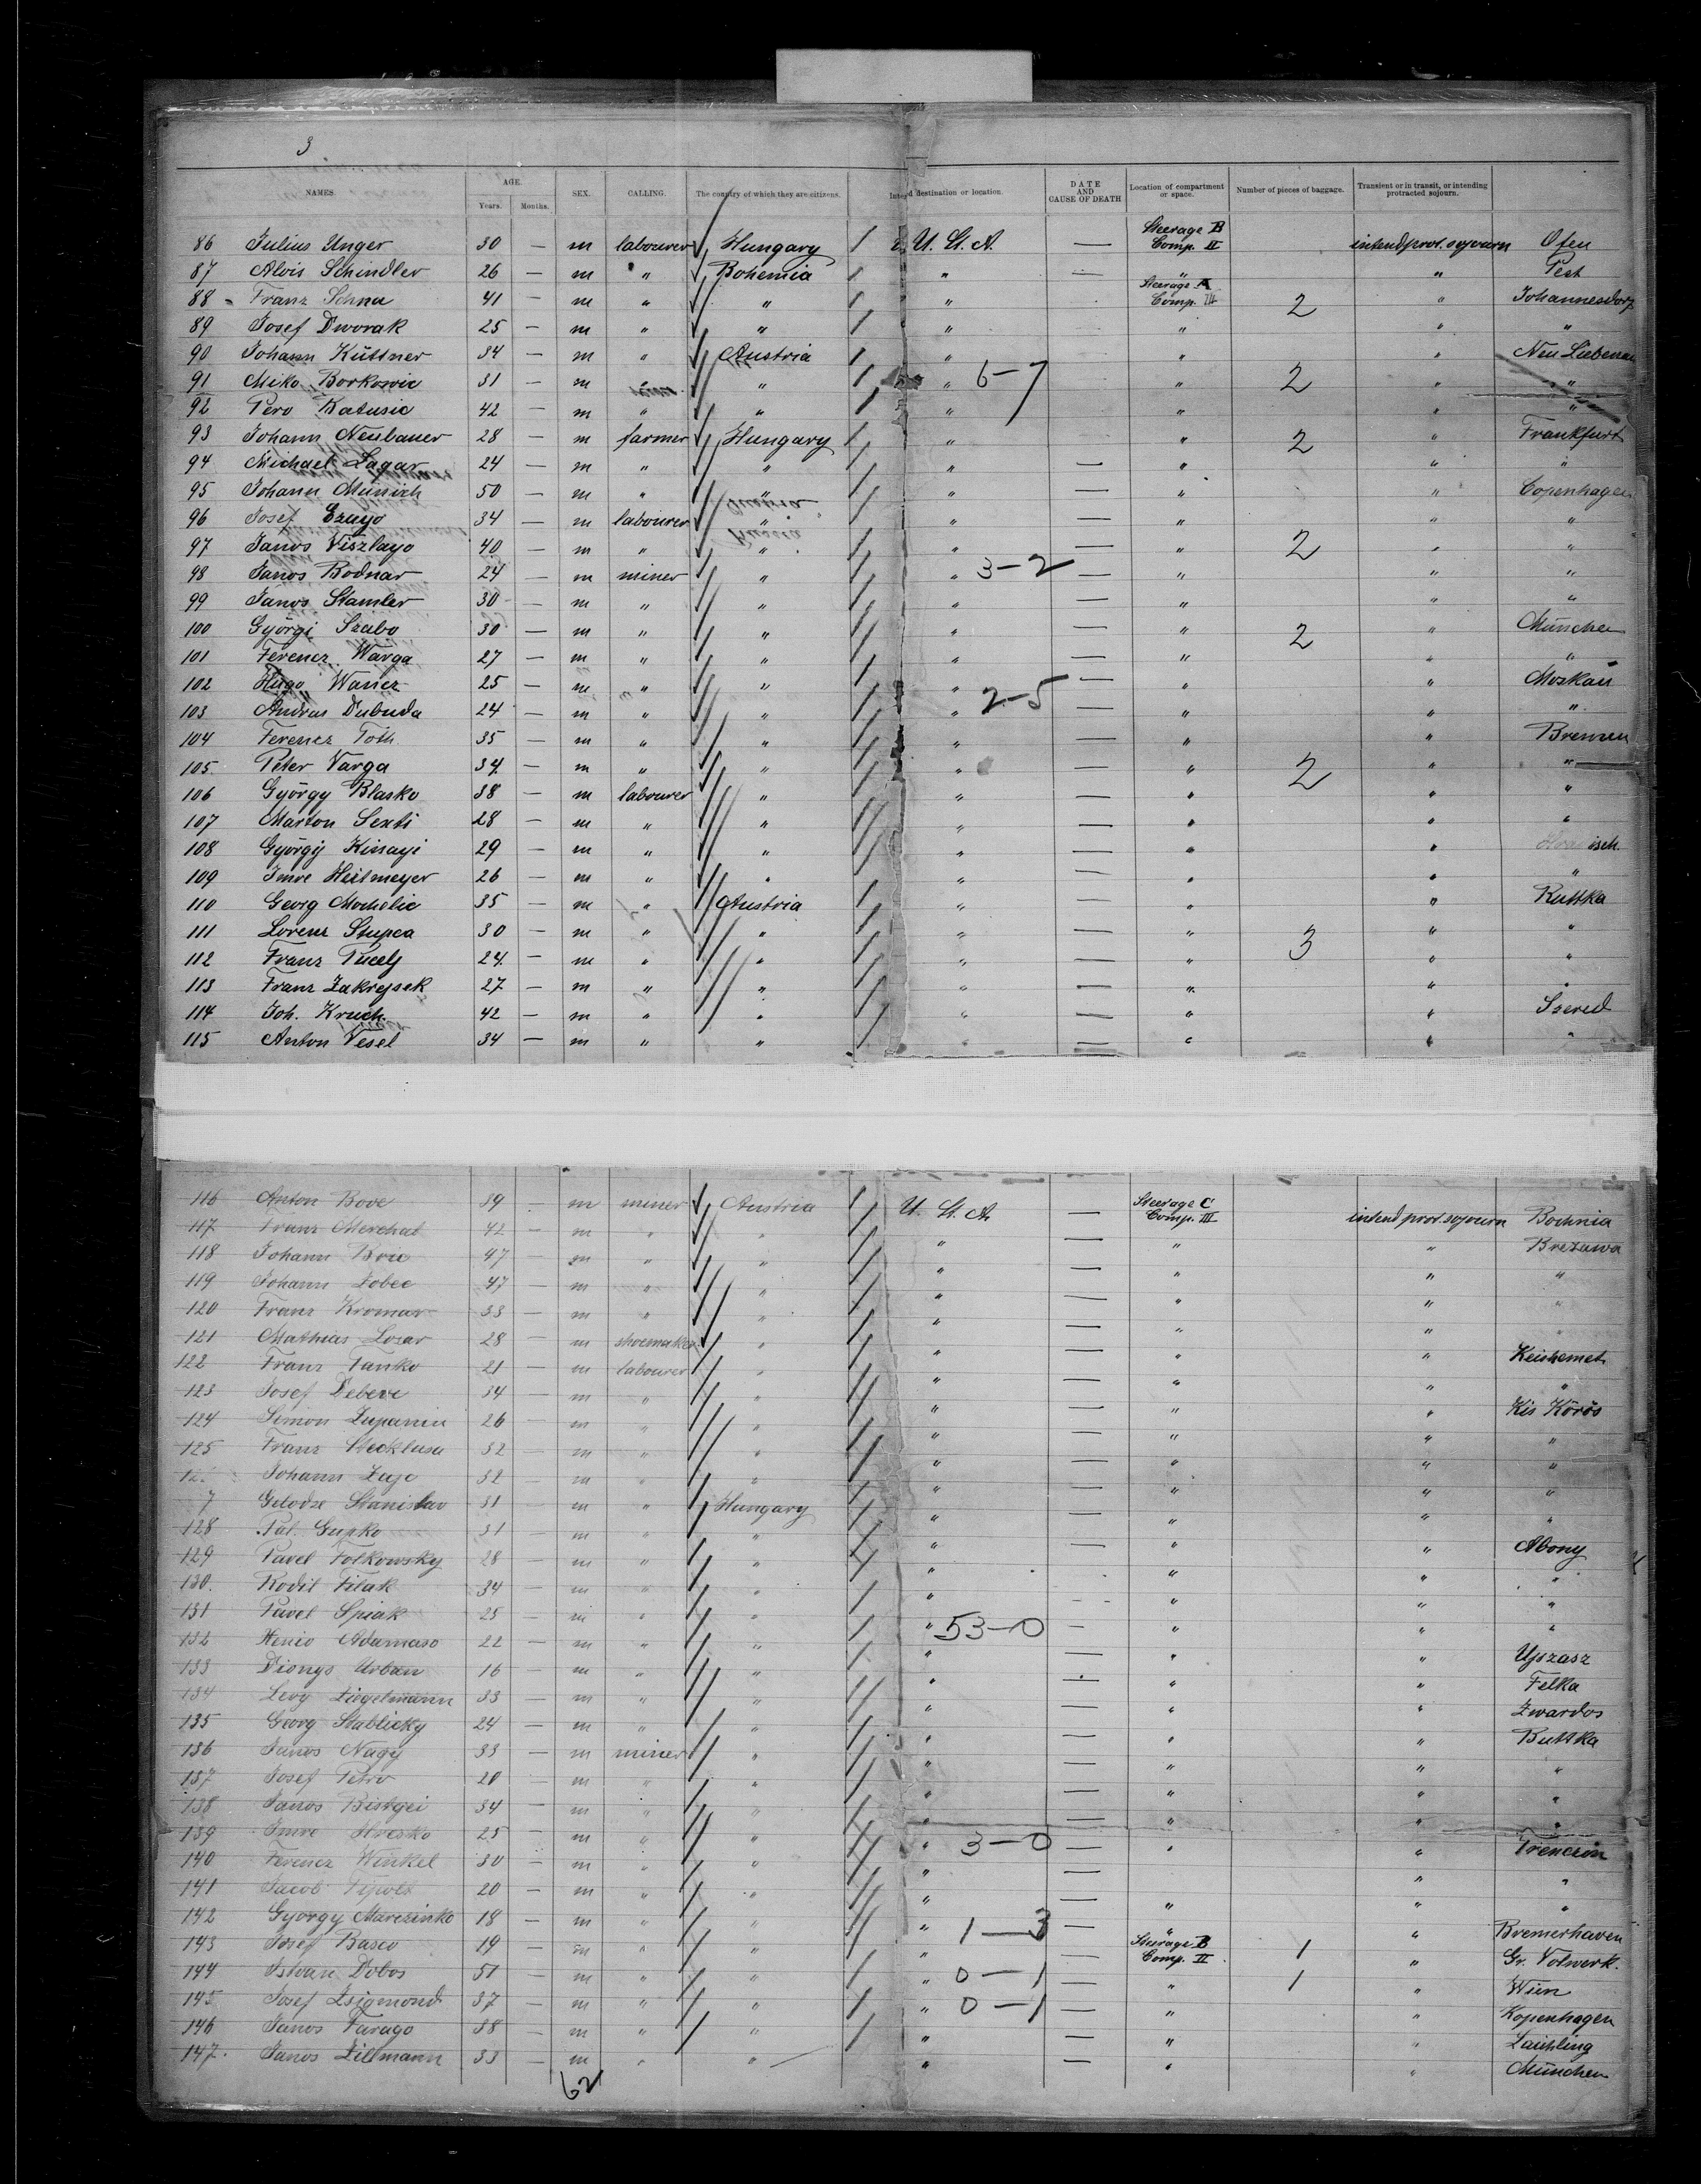 3
NAMES. AGE. Years. Months. SEX. CALLING. The country of which they are citizens. destination or location. DATE AND CAUSE OF DEATH Location of compartment or space. Number of pieces of baggage. Transient or in transit, or intending protracted sojourn.
86 Julius Unger 30 — m labourer Hungary U. St. A. — Steerage B Comp. II intend prot. sojourn Ofen
87 Alois Schindler 26 — m " Bohemia " — " " Pest
88 Franz 41 — m " " " Steerage A Comp. 2 " Johannesdorf
89 Josef Dworak 25 — m " " " " " "
90 Johann Küttner 34 — m " Austria " " " Neu Liebenau
91 Miko Borkowic 31 — m " " " 6-7 " 2 " "
92 Pero Batusic 42 — m " " " " " "
93 Johann Neubauer 28 — m farmer Hungary " " 2 " Frankfurt
94 Michael Lagar 24 — m " " " — " " "
95 Johann Münnich 50 — m " " " — " " Copenhagen
96 Josef 34 — m labourer " " — " " "
97 Janos Viszlayo 40 — m " " " — " 2 " "
98 Janos Bodnar 24 — m miner " " 3-2 — " " "
99 Janos Stamler 30 — m " " " — " " "
100 Györgi Szabo 30 — m " " " — " 2 " München
101 Ferencz Warga 27 — m " " " — " " "
102 Hugo 25 — m " " " — " " Moskau
103 Andras Dubuda 24 — m " " " 2-5 — " " "
104 Ferencz Toth 35 — m " " " — " " Bremen
105 Peter Varga 34 — m " " " — " 2 " "
106 György Blasko 38 — m labourer " " — " " "
107 Marton Senti 28 — m " " " — " " "
108 Györgÿ Kissayi 29 — m " " " — " "
109 Imre Heilmeyer 26 — m " " " — " " "
110 Georg Mochilic 35 — m " Austria " — " " Ruttka
111 Lorenz Stupca 30 — m " " " — " 3 " "
112 Franz Pucelj 24 — m " " " — " " "
113 Franz Zakrejsek 27 — m " " " — " " "
114 Joh. Kruch 42 — m " " " — " " Szered
115 Anton Vesel 34 — m " " " — " " "
116 Anton Bove 39 — m miner Austria U. St. A. — Steerage C Comp. III intend prot. sojourn Bochnia
117 Franz Merchat 42 — m " " " — " " Brezuwa
118 Johann 47 — m " " " — " " "
119 Johann Zobec 47 — m " " " — " " "
120 Franz Kromar 33 — m " " " — " " "
121 Mathias Lozar 28 — m shoemaker " " — " " Keiskemet
122 Franz Tanko 21 — m labourer " " — " " "
123 Josef Debeve 34 — m " " " — " " Kis Körös
124 Simon Zupancic 26 — m " " " — " " "
125 Franz Stecklasa 32 — m " " " — " " "
Johann 32 — m " " " — " " "
7 Stanislav 31 — m " Hungary " — " " "
128 Pal. Gupko 31 — m " " " — " " Abony
129 Pavel Folkowsky 28 — m " " " " " "
130. Rodit Filak 34 — m " " " " " "
131 Pavel Spiak 25 — m " " " 53-0 — " " "
132 Henio Adamaso 22 — m " " " — " " Ujszasz
133 Dionys Urban 16 — m " " " — " " Felka
134 Levy Ziegelmann 33 — m " " " — " " Zwardos
135 Georg Stablicky 24 — m " " " — " " Buttka
136 Janos Nagy 33 — m miner " " — " " "
137 Josef Petro 20 — m " " " — " " "
138 Janos 34 — m " " " — " " "
139 Imre Hresko 25 — m " " " 3-0 — " " Trenczin
140 Ferencz Winkel 30 — m " " " — " "
141 Jacob 20 — m " " " — " " "
142 György Marczinko 18 — m " " " 1-3 — " " Bremerhaven
143 Josef Basco 19 — m " " " — Steerage B Comp. II 1 " Gr. Volwerk.
144 Istvan Dobos 51 — m " " " 0-1 — " 1 " Wien
145 Josef Zsigmond 37 — m " " " 0-1 — " " Kopenhagen
146 Janos Farago 38 — m " " " — " " Laichling
147. Janos Zillmann 33 — m " " " — " " München
62